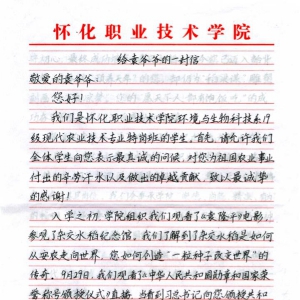 怀化职业技术学院
给袁爷爷的一封信
敬爱的袁爷爷：
您好！
我们是怀化职业技术学院环境与生物科技系19
级现代农业技术专业特岗班的学生。首先，请允许我们
全体学生向您表示最真诚的问候，对您为祖国农业事业
付出的辛劳汗水以及做出的卓越贡献，致以最诚挚
的感谢！
入学之初，学院组织我们观看了《袁隆平》电影，
参观了杂交水稻纪念馆，我们了解到了杂交水稻是如何
从安农走向世界，您如何创造“一粒种子改变世界”的
传奇。9月29日，我们观看《中华人民共和国勋章和国家荣
誉称号颁授仪式》直播，当看到习总书记为您颁授共和